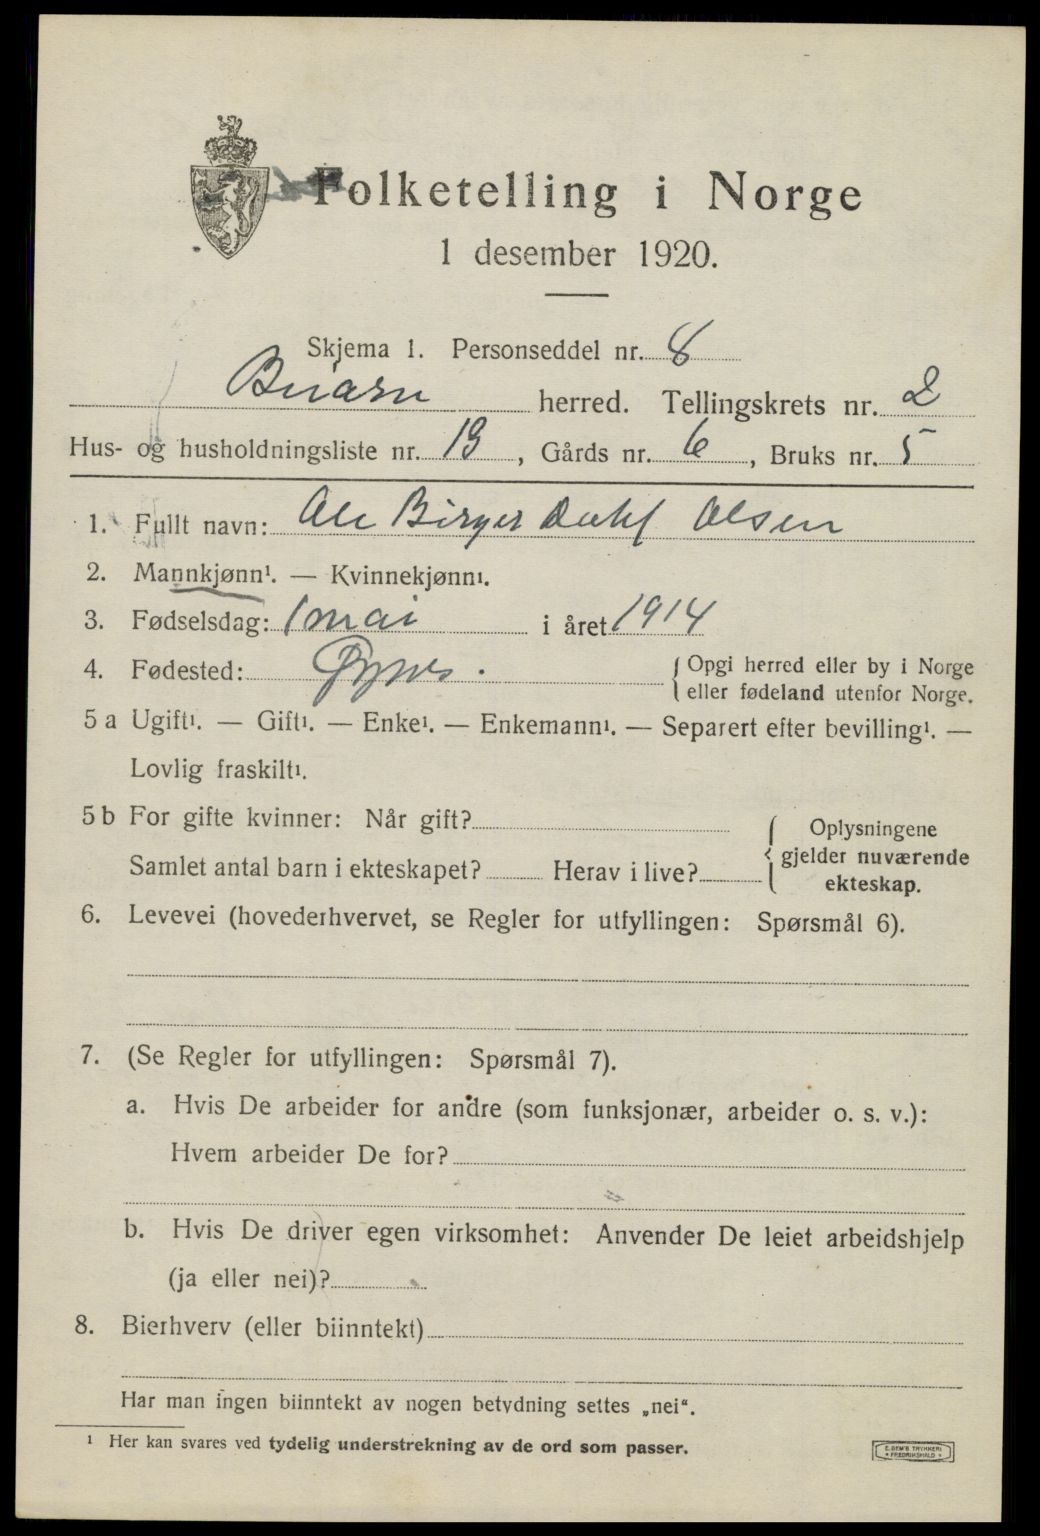 Folketelling i Norge
1 desember 1920.
Skjema 1. Personseddel nr. 8
herred. Tellingskrets nr. 2
Hus- og husholdningsliste nr. 13, Gårds nr. 6, Bruks nr. 5
1. Fullt navn: Ole Birger Olsen
2. Mannkjønn¹. — Kvinnekjønn¹.
3. Fødselsdag: 1 mai i året 1914
4. Fødested: Øynes. Opgi herred eller by i Norge
eller fødeland utenfor Norge.
5 a Ugift¹. — Gift¹. — Enke¹. — Enkemann¹. — Separert efter bevilling¹. —
Lovlig fraskilt¹.
5 b For gifte kvinner: Når gift? Oplysningene
gjelder nuværende
Samlet antal barn i ekteskapet? Herav i live?
ekteskap.
6. Levevei (hovederhvervet, se Regler for utfyllingen: Spørsmål 6).
7. (Se Regler for utfyllingen: Spørsmål 7).
a. Hvis De arbeider for andre (som funksjonær, arbeider o. s. v.):
Hvem arbeider De for?
b. Hvis De driver egen virksomhet: Anvender De leiet arbeidshjelp
(ja eller nei)?
8. Bierhverv (eller biinntekt)
Har man ingen biinntekt av nogen betydning settes „nei".
¹ Her kan svares ved tydelig understrekning av de ord som passer.
E. SEM'S TRYKKERI
FREDRIKSHALD